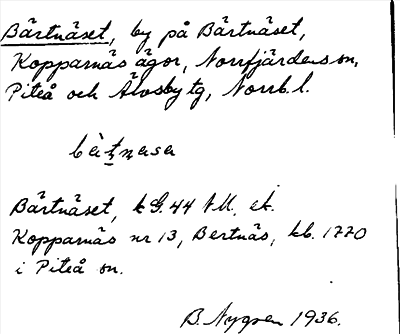 Bärtnäset, by på Bärtnäset,
Kopparnäs ägor, Norrfjärdens sn,
Piteå och Älvsby tg, Norrb. l.
Bärtnäset, k G. 44 NU, ek.
Kopparnäs nr 13, Bertnäs, kb. 1770
i Piteå sn.
B. Nygren 1936.